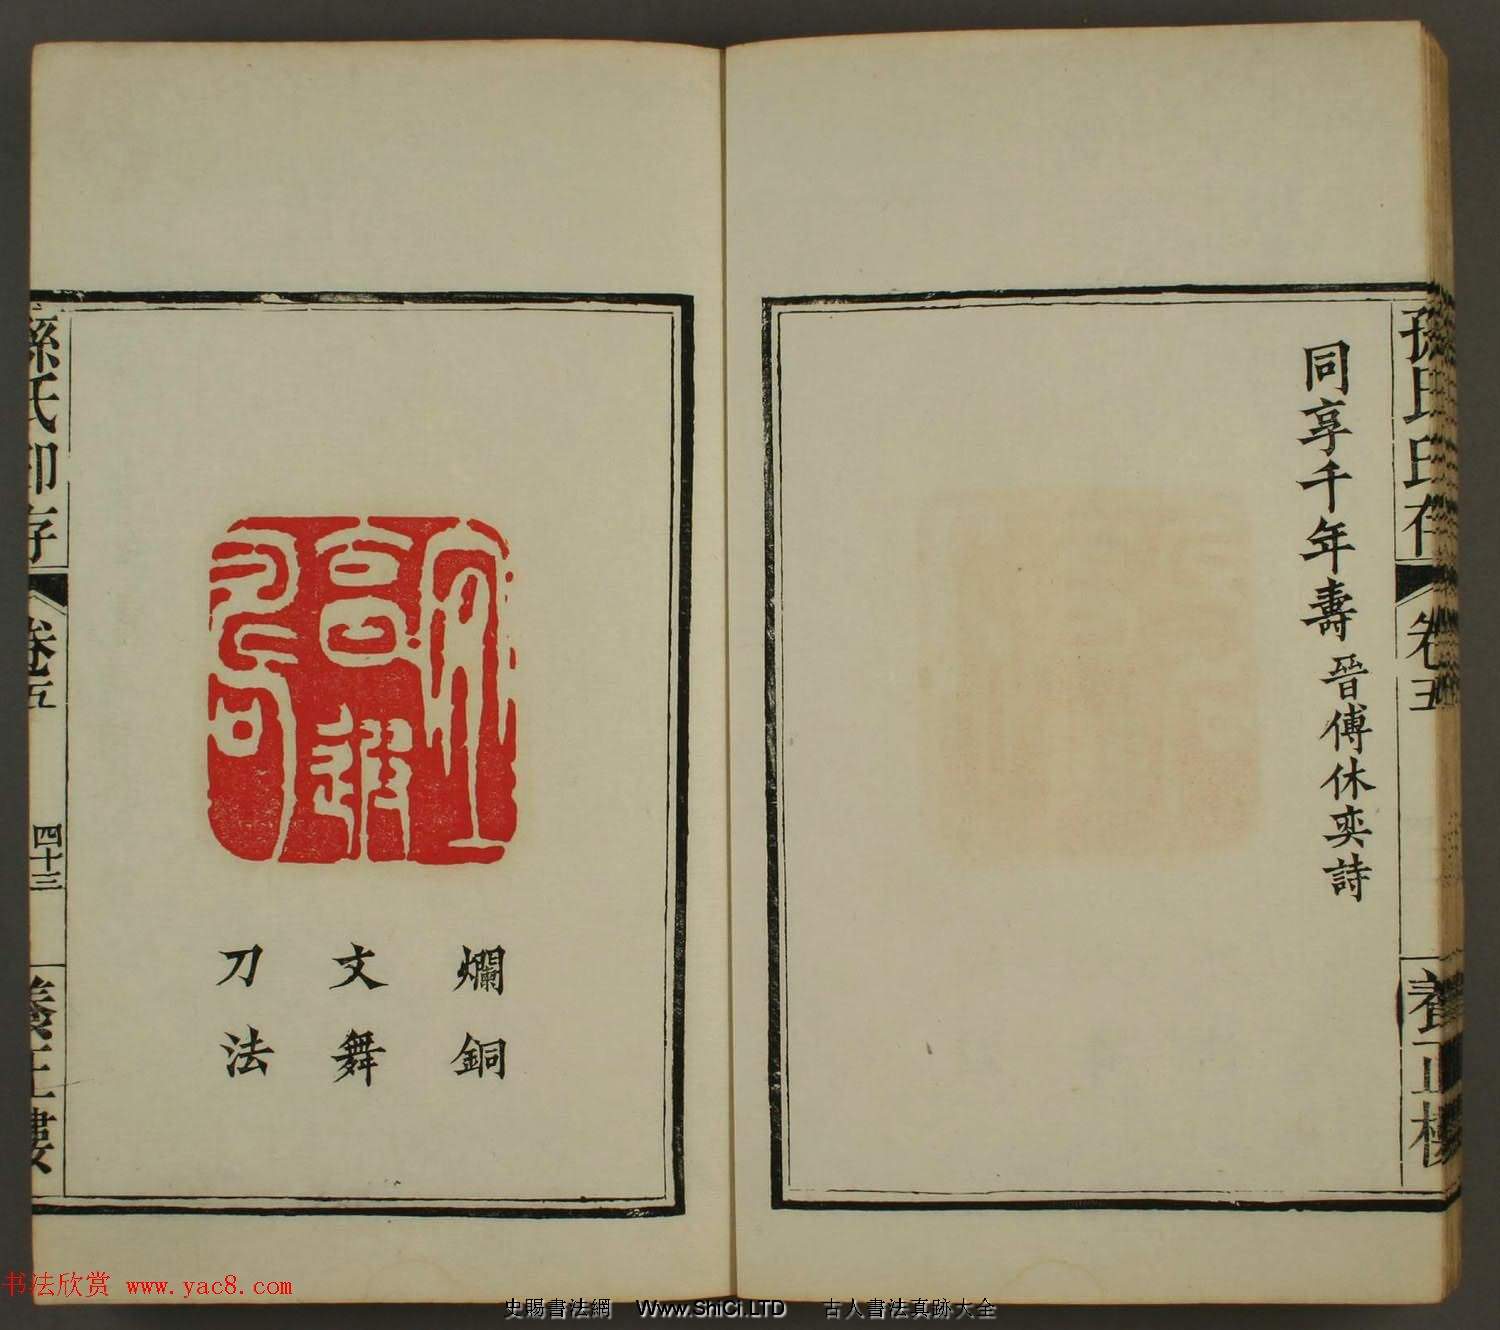 孫氏印存
卷五
養正樓
同享千年壽 晉傅休奕詩
爛銅
文舞
刀法
孫氏印存
卷五
四十三
養正樓
书法欣赏 www.yac8.com
史賜書法網 Www.ShiCi.LTD 古人書法真跡大全